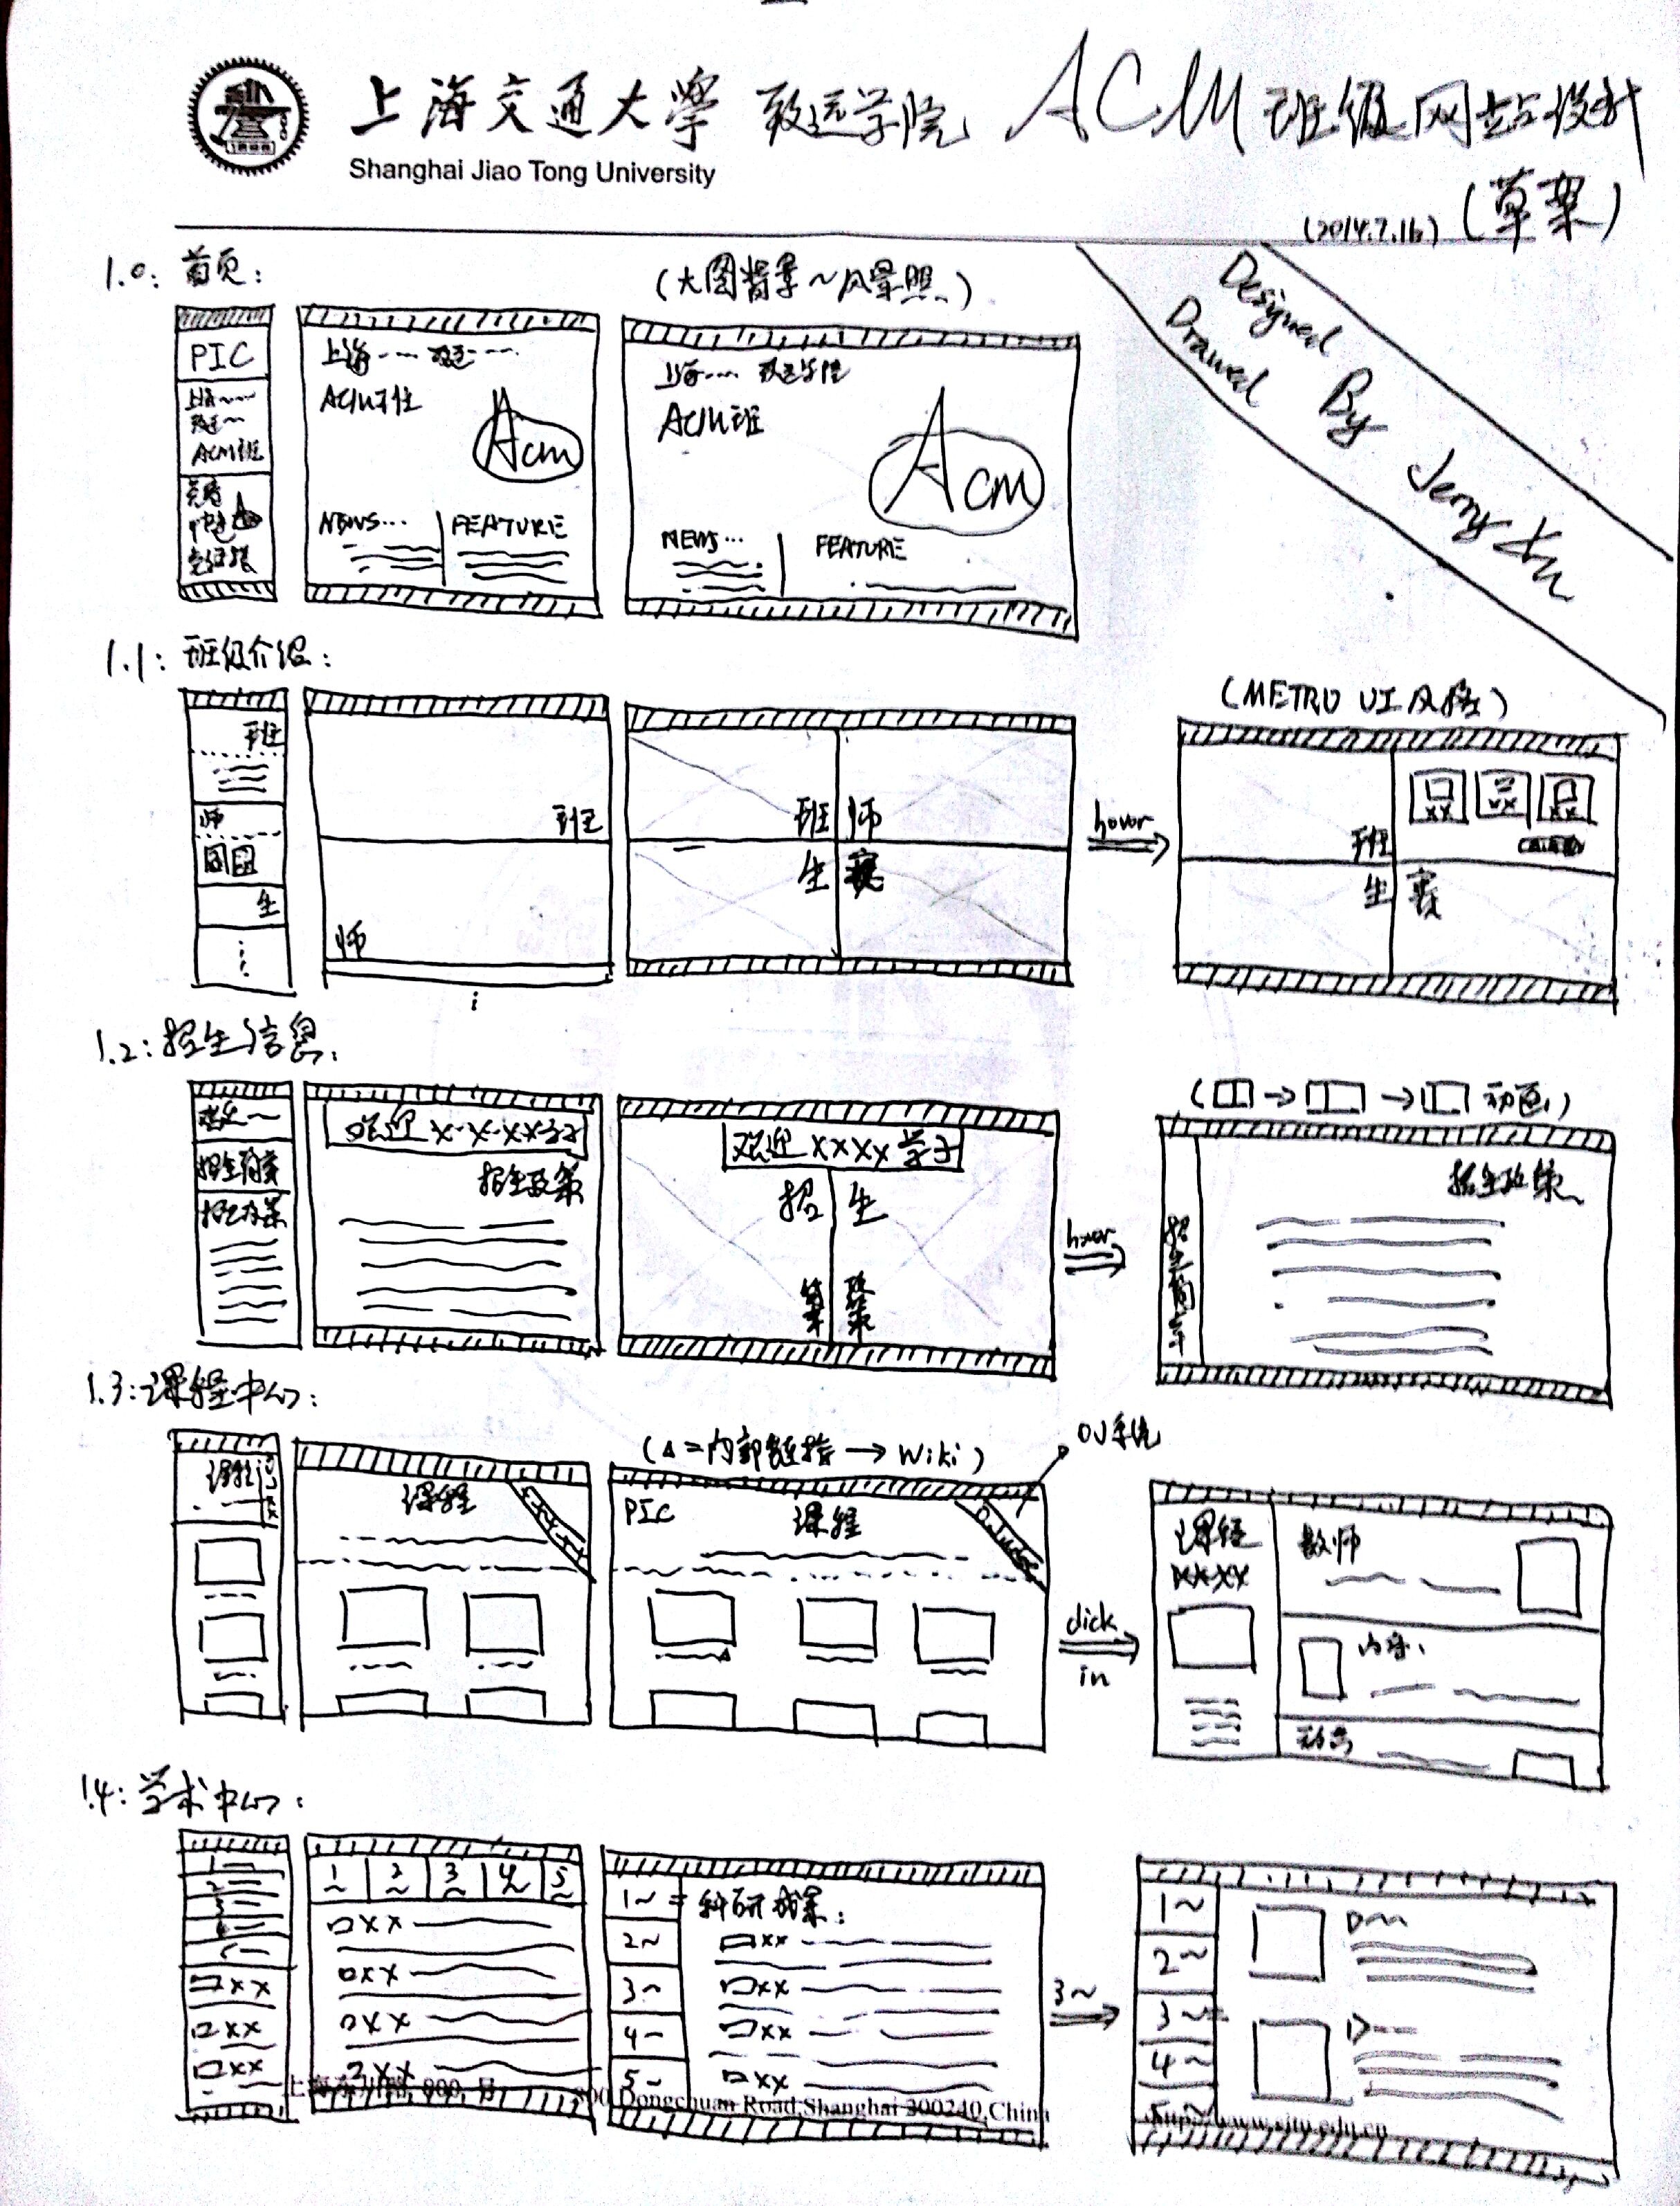 上海交通大學 致远学院 ACM 班级网站设计
Shanghai Jiao Tong University
(草案)
(2014.7.16)
Designed
Drawed
By
Jerry Xu
1.0: 首页:
(大图背景～风景照)
PIC
上海~~
致远~~
ACM班
上海---- 致远---
ACM班
Acm
NEWS...
FEATURE
上海---- 致远学院
ACM班
Acm
NEWS...
FEATURE
1.1: 班级介绍:
(METRO UI 风格)
班
师
生
班
师
班 师
生 赛
hover
班
生 赛
1.2: 招生信息:
(□□→□□→□□ 动画)
招生政策
欢迎 x·x·xx学子
招生政策
欢迎 xxxx 学子
招 生
策
hover
招生政策
1.3: 课程中心:
(△=内部链接 → Wiki)
OJ系统
课程
课程
PIC
课程
click
in
课程
xxxx
教师
内容
动态
1.4: 学术中心:
1
2
3
4
5
□xx
□xx
□xx
1~ 2~ 3~ 4~ 5~
□xx
□xx
□xx
□xx
1~ = 科研成果:
2~
3~
4~
5~
□xx
□xx
□xx
□xx
3~
1~
2~
3~
4~
5~
上海东川路 800 号
800 Dongchuan Road,Shanghai 200240,China
http://www.sjtu.edu.cn